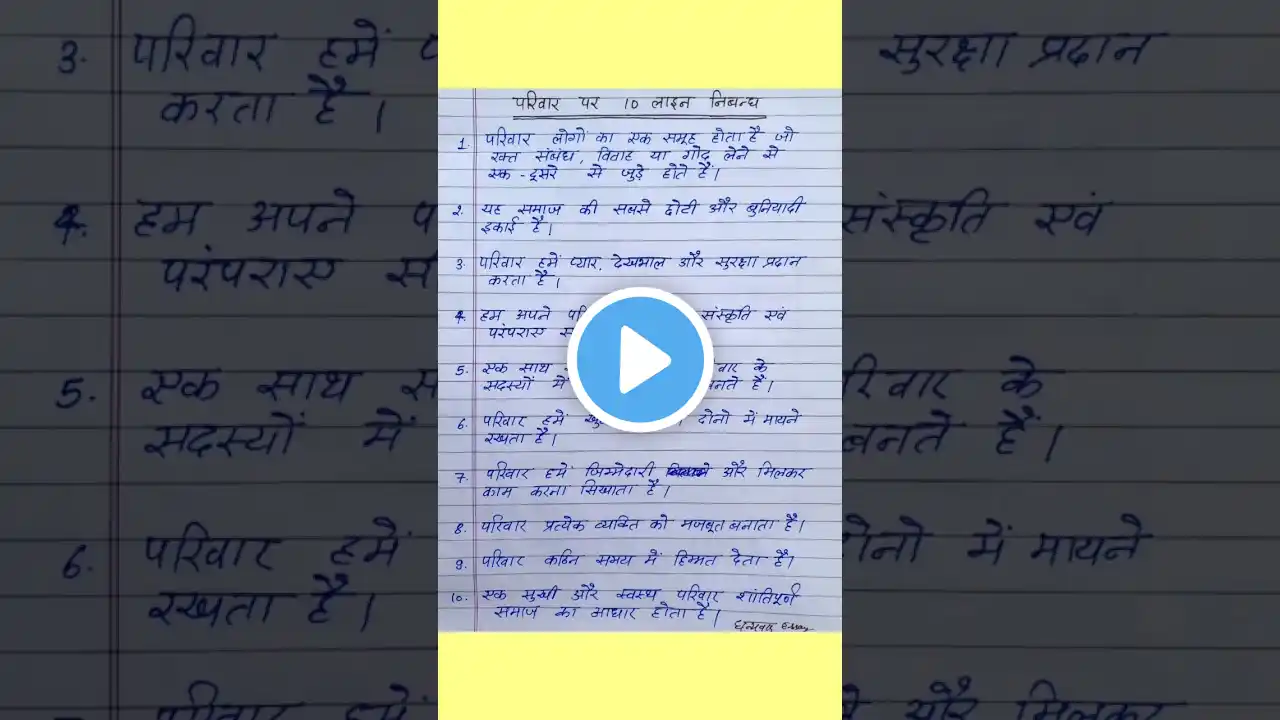 परिवार पर 10 लाइन निबन्ध
1. परिवार लोगों का एक समूह होता है जो
रक्त संबंध, विवाह या गोद लेने से
एक-दूसरे से जुड़े होते हैं।
2. यह समाज की सबसे छोटी और बुनियादी
इकाई है।
3. परिवार हमें प्यार, देखभाल और सुरक्षा प्रदान
करता है।
4. हम अपने संस्कृति एवं
परंपराए
5. एक साथ के
सदस्यों में बनते हैं।
6. परिवार हमें दोनो में मायने
रखता है।
7. परिवार हमें जिम्मेदारी और मिलकर
काम करना सिखाता है।
8. परिवार प्रत्येक व्यक्ति को मजबूत बनाता है।
9. परिवार कठिन समय में हिम्मत देता है।
10. एक सुखी और स्वस्थ परिवार शांतिपूर्ण
समाज का आधार होता है।